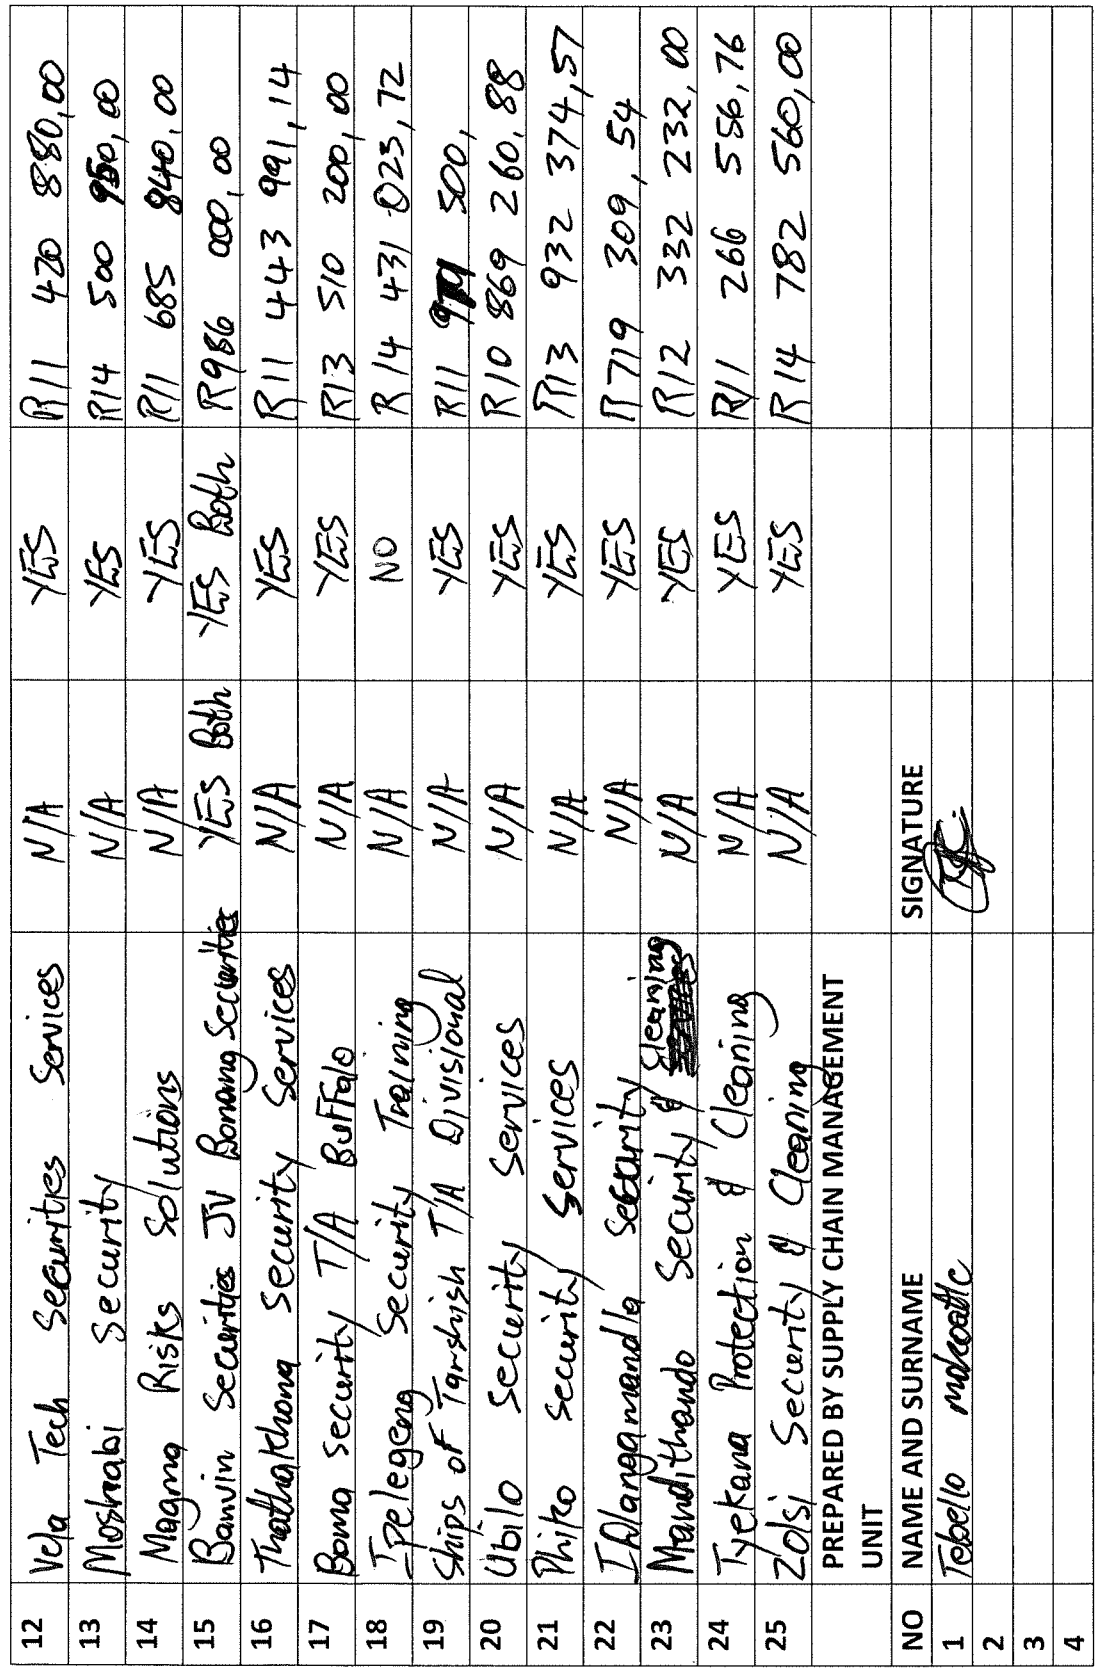 12 Vela Tech Securities Services N/A YES R11 420 880,00
13 Moshabi Security N/A YES R14 500 950,00
14 Magma Risks Solutions N/A YES R11 685 840,00
15 Banvin Securities JV Bonang Securities YES Both YES Both R986 000,00
16 Thathakhona Security Services N/A YES R11 443 991,14
17 Boma Security T/A Buffalo N/A YES R13 510 200,00
18 Ipelegeng Security Training N/A NO R14 431 023,72
19 Ships of Tarshish T/A Divisional N/A YES R11 500,
20 Ubilo Security Services N/A YES R10 869 260,88
21 Phiko Security Services N/A YES R13 932 374,57
22 Security N/A YES R719 309,54
23 Mandithando Security & Cleaning N/A YES R12 332 232,00
24 Tyekana Protection & Cleaning N/A YES R11 266 556,76
25 Zolsi Security & Cleaning N/A YES R14 782 560,00
PREPARED BY SUPPLY CHAIN MANAGEMENT
UNIT
NO NAME AND SURNAME SIGNATURE
1 Tebello
2
3
4